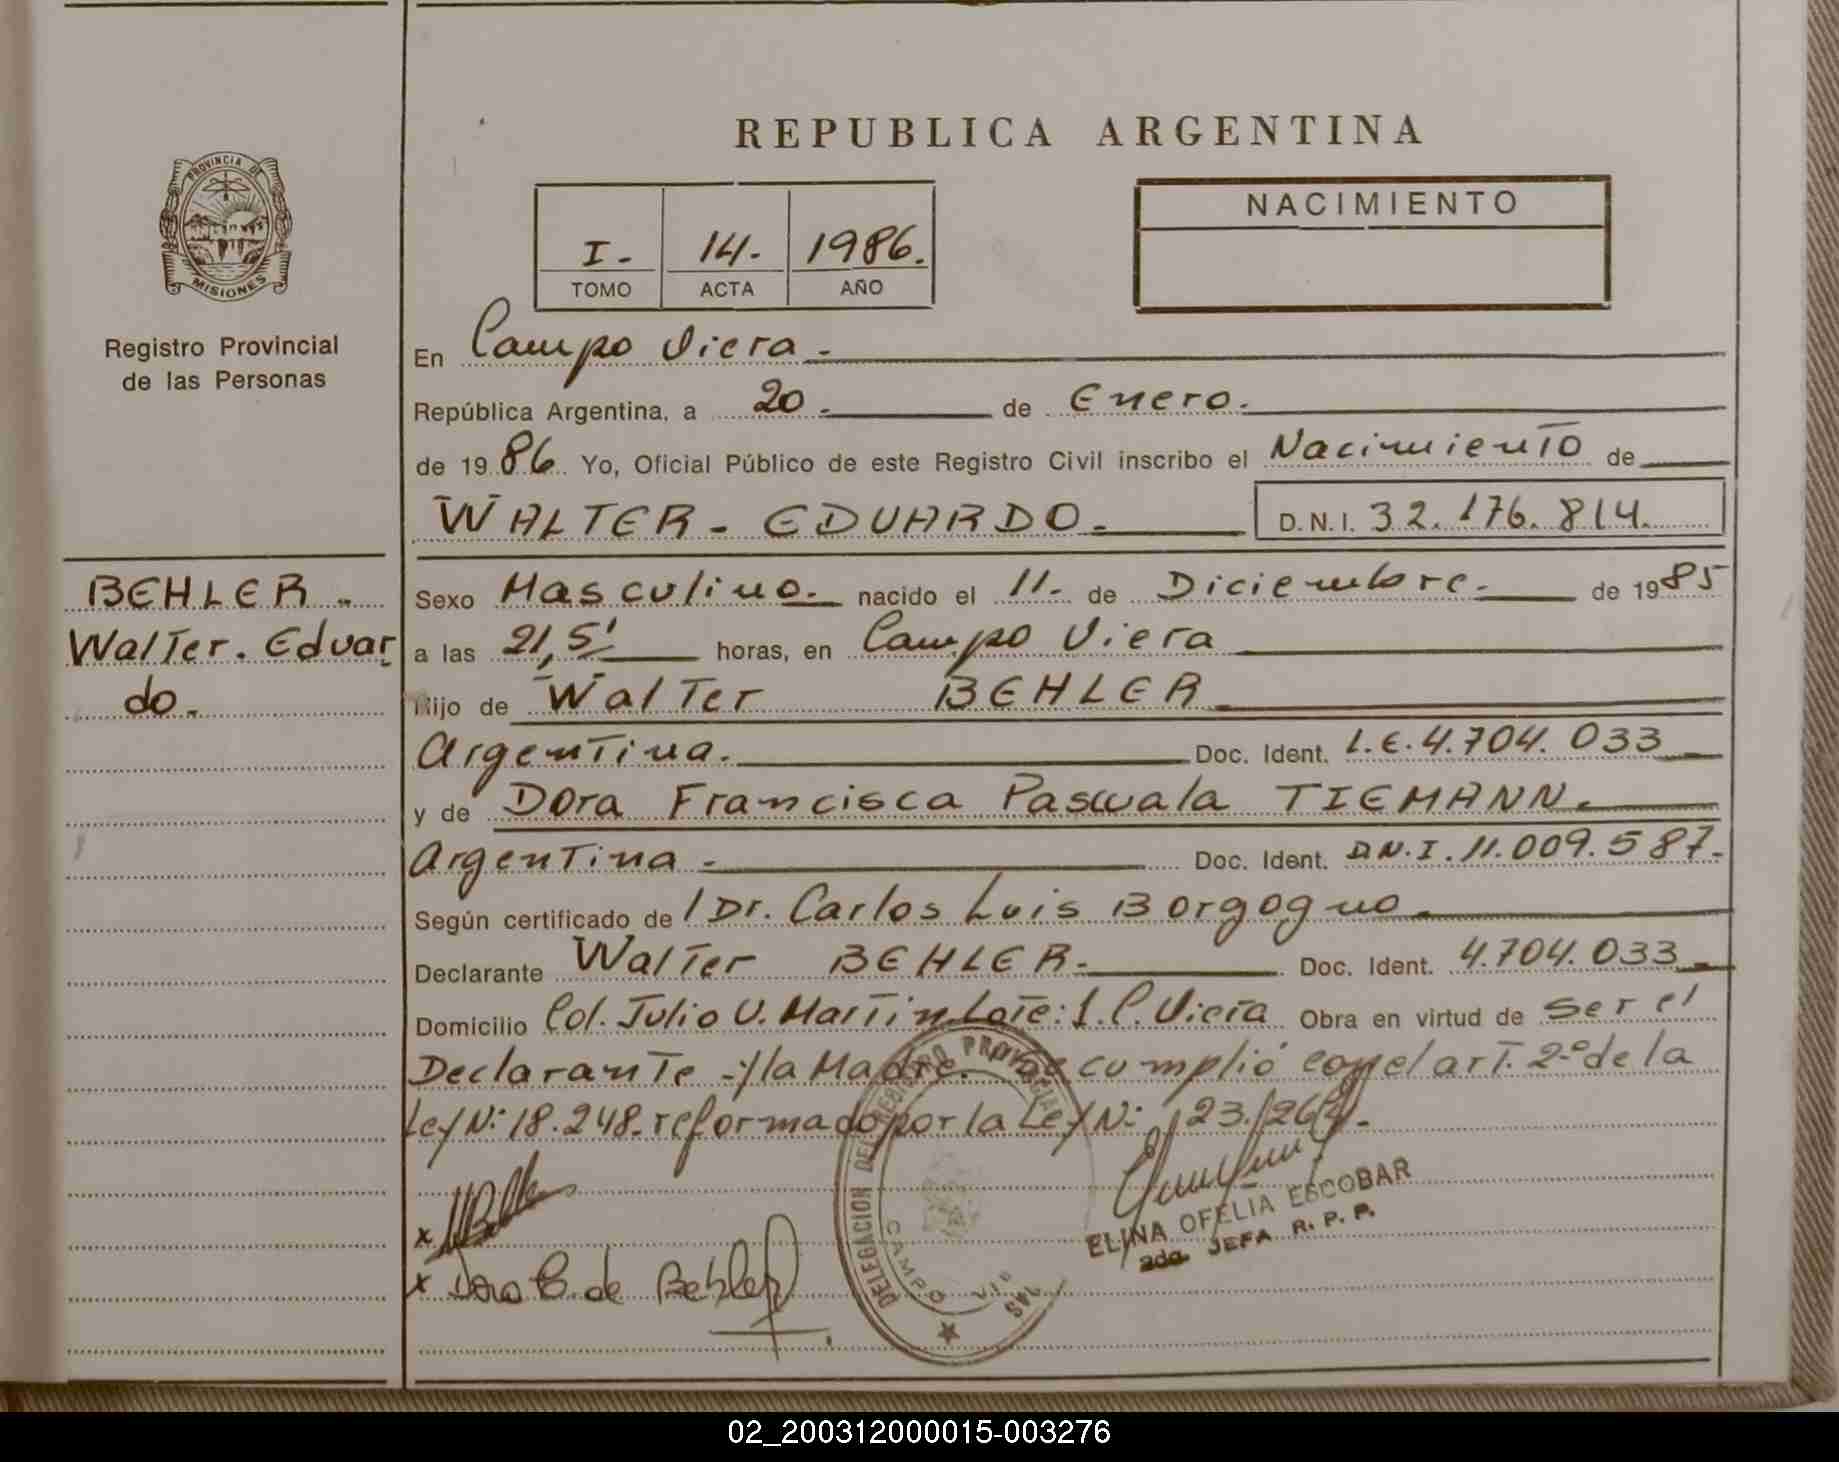 REPUBLICA ARGENTINA
PROVINCIA DE
MISIONES
Registro Provincial
de las Personas
I.- 14.- 1986.
TOMO ACTA AÑO
NACIMIENTO
En Campo Viera.-
República Argentina, a 20.- de Enero.-
de 1986. Yo, Oficial Público de este Registro Civil inscribo el Nacimiento de
WALTER - EDUARDO.- D.N.I. 32.176.814.
BEHLER.-
Walter. Eduar
do.-
Sexo Masculino.- nacido el 11.- de Diciembre.- de 1985
a las 21,5' horas, en Campo Viera
Hijo de Walter BEHLER
Argentina.- Doc. Ident. L.E.4.704.033
y de Dora Francisca Pascuala TIEMANN.-
Argentina.- Doc. Ident. D.N.I.11.009.587.-
Según certificado de l Dr. Carlos Luis Borgogno.-
Declarante Walter BEHLER.- Doc. Ident. 4.704.033.-
Domicilio Col. Julio U. Martin Lote: 1. C. Viera Obra en virtud de ser el
Declarante.-y la Madre. Se cumplió con el art. 2º de la
Ley N: 18.248.reformado por la Ley N: 23.264.-
x
x Dora B. de Behler
DELEGACION DEL REGISTRO PROVINCIAL
CAMPO
ELINA OFELIA ESCOBAR
2da JEFA R. P. P.
02_200312000015-003276